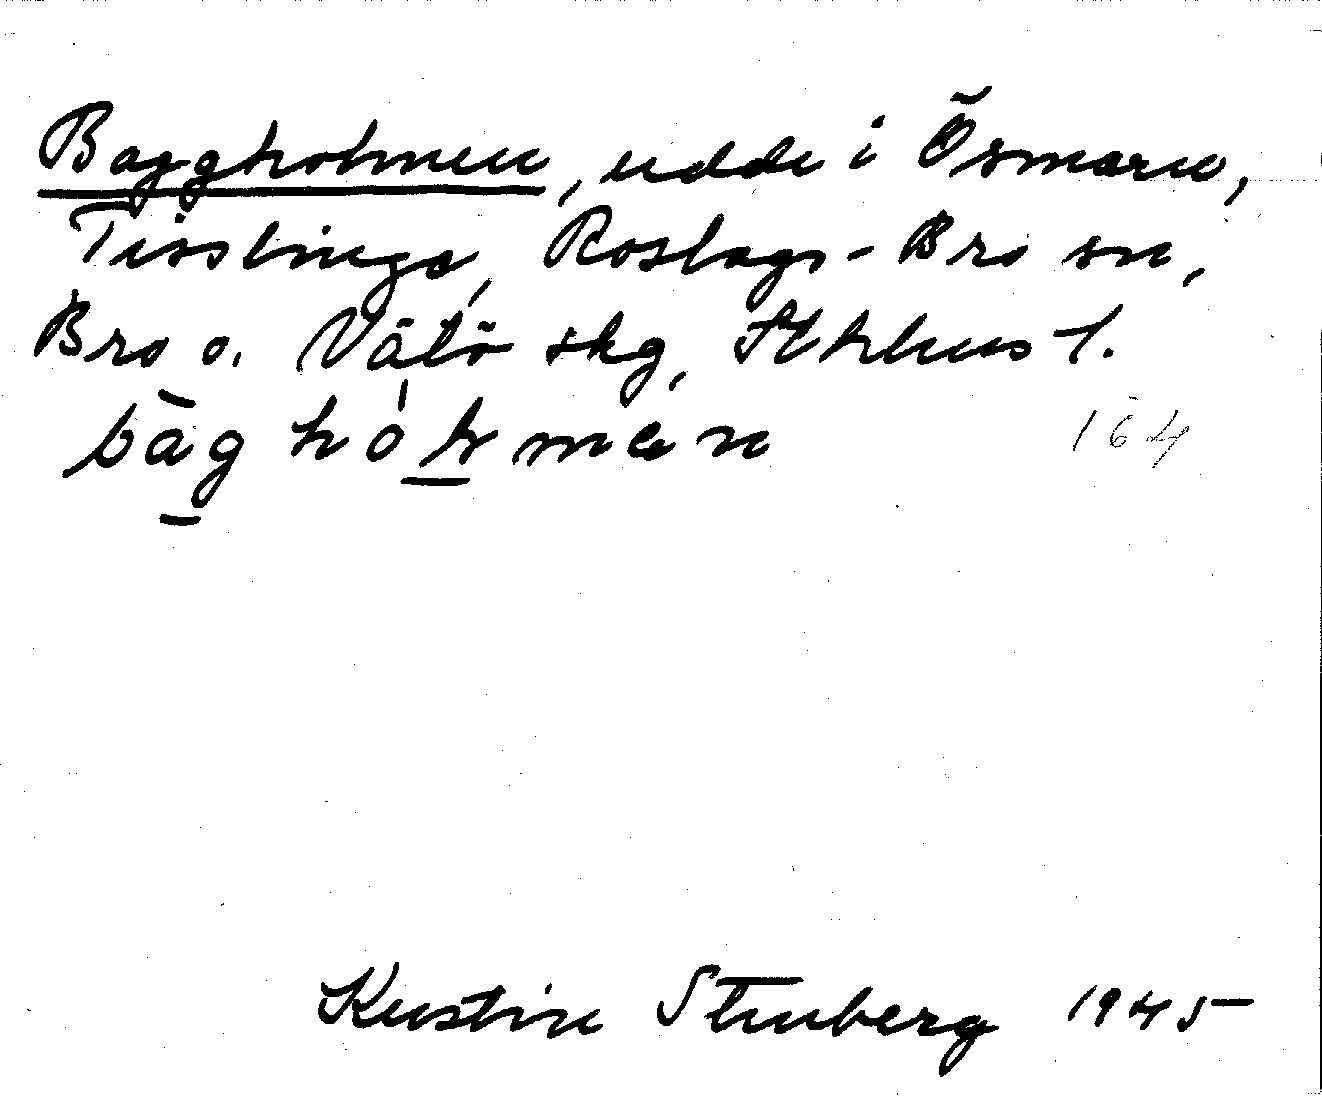 Baggholmen, udde i Ösmaren,
Tisslinge, Roslags-Bro sn,
Bro o. Vätö skg, Sthlms l.
bàghòlmen 164
Kerstin Stenberg 1945